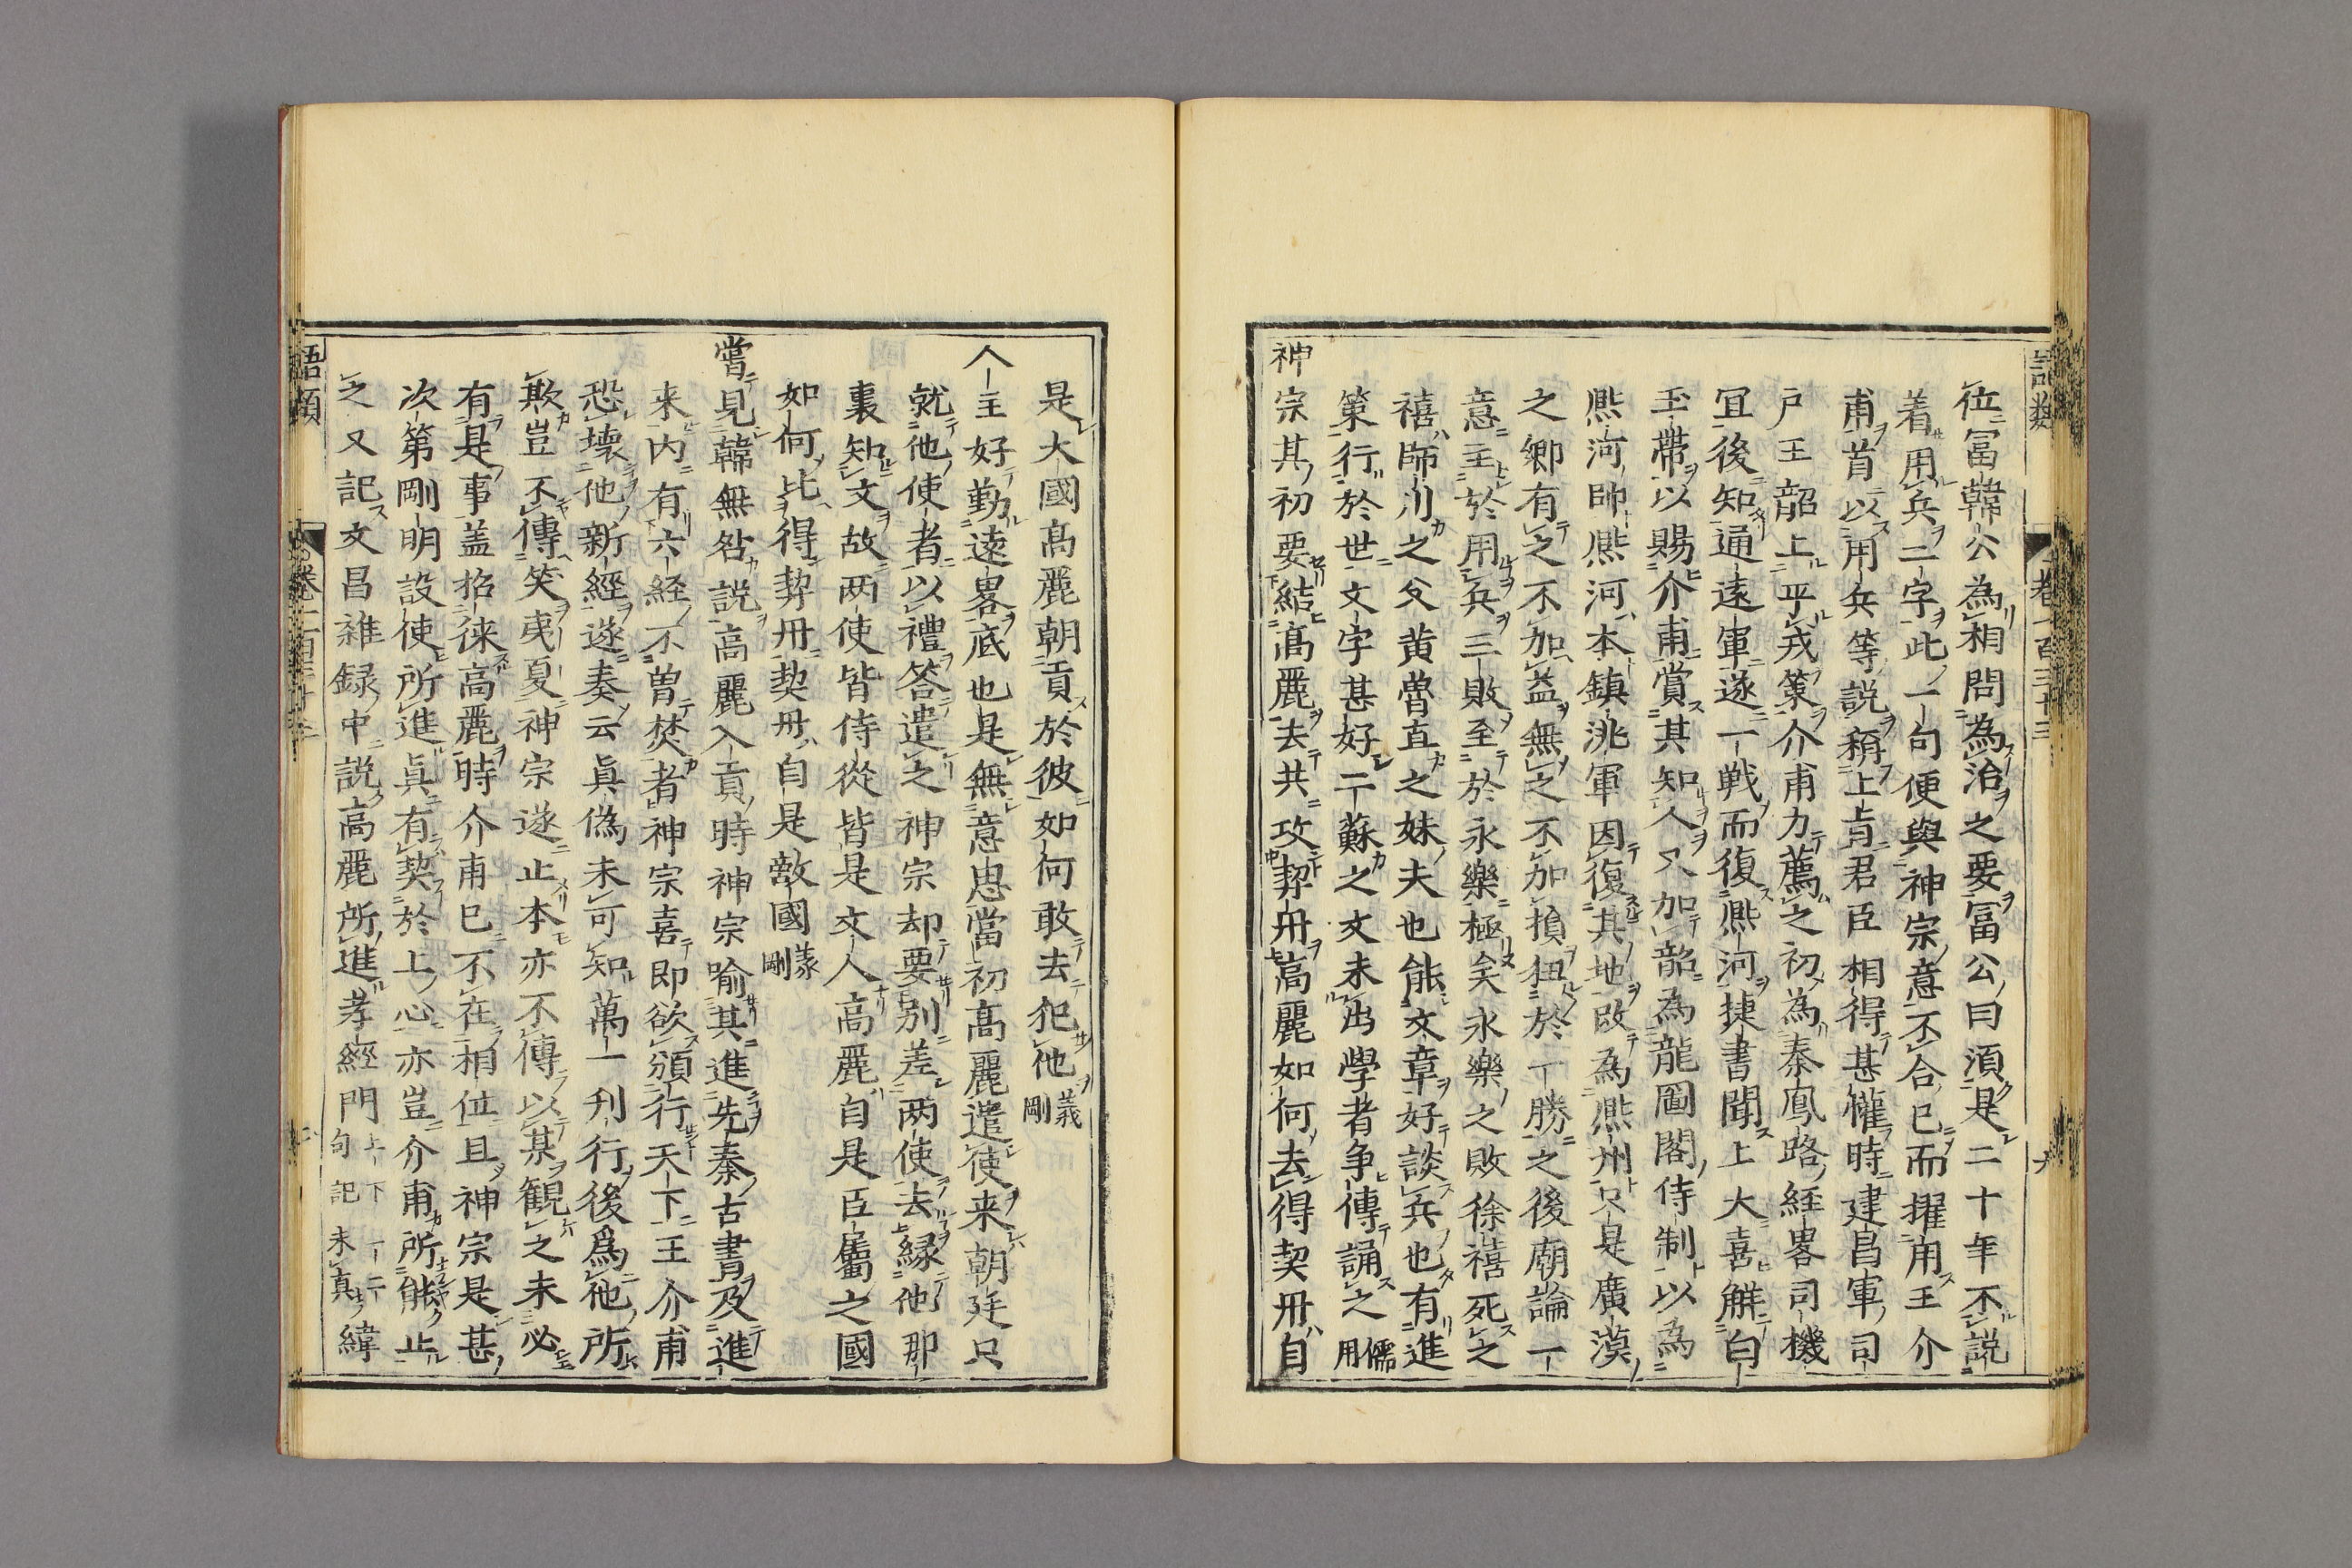 語類 卷一百三十三 九
位冨韓公為相問為治之要冨公曰湏是二十年不説
着用兵二字此一句便與神宗意不合已而擢用王介
甫首以用兵等説稱上㫖君臣相得甚懽時建昌軍司
户王韶上平戎策介甫力薦之初為秦鳳路經畧司機
冝後知通遠軍遂一戦而復熈河捷書聞上大喜觧白
玉帶以賜介甫賞其知人又加韶為龍圖閣侍制以為
熈河帥熈河本鎮洮軍因復其地改為熈州只是廣漠
之鄉有之不加益無之不加損狃於一勝之後廟論一
意主於用兵三敗至於永樂極矣永樂之敗徐禧死之
禧師川之父黄魯直之妹夫也能文章好談兵也有進
策行於世文字甚好二蘇之文未出學者争傳誦之 儒用
神宗其初要結髙麗去共攻契丹髙麗如何去得契丹自
是大國髙麗朝貢於彼如何敢去犯他 義剛
人主好勤遠畧底也是無意思當初髙麗遣使来朝廷只
就他使者以禮答遣之神宗却要别差两使去縁他那
裏知文故两使皆侍從皆是文人高麗自是臣屬之國
如何比得契丹契丹自是敵國 義剛
嘗見韓無咎説高麗入貢時神宗喻其進先秦古書及進
来内有六經不曽焚者神宗喜即欲頒行天下王介甫
恐壊他新經遂奏云眞僞未可知萬一刋行後爲他所
欺豈不傳笑夷夏神宗遂止本亦不傳以某観之未必
有是事盖招徠高麗時介甫已不在相位且神宗是甚
次第剛明設使所進眞有契於上心亦豈介甫所能止
之又記文昌雜録中説高麗所進孝經門上下一二句記未真緯
語類 卷一百三十三